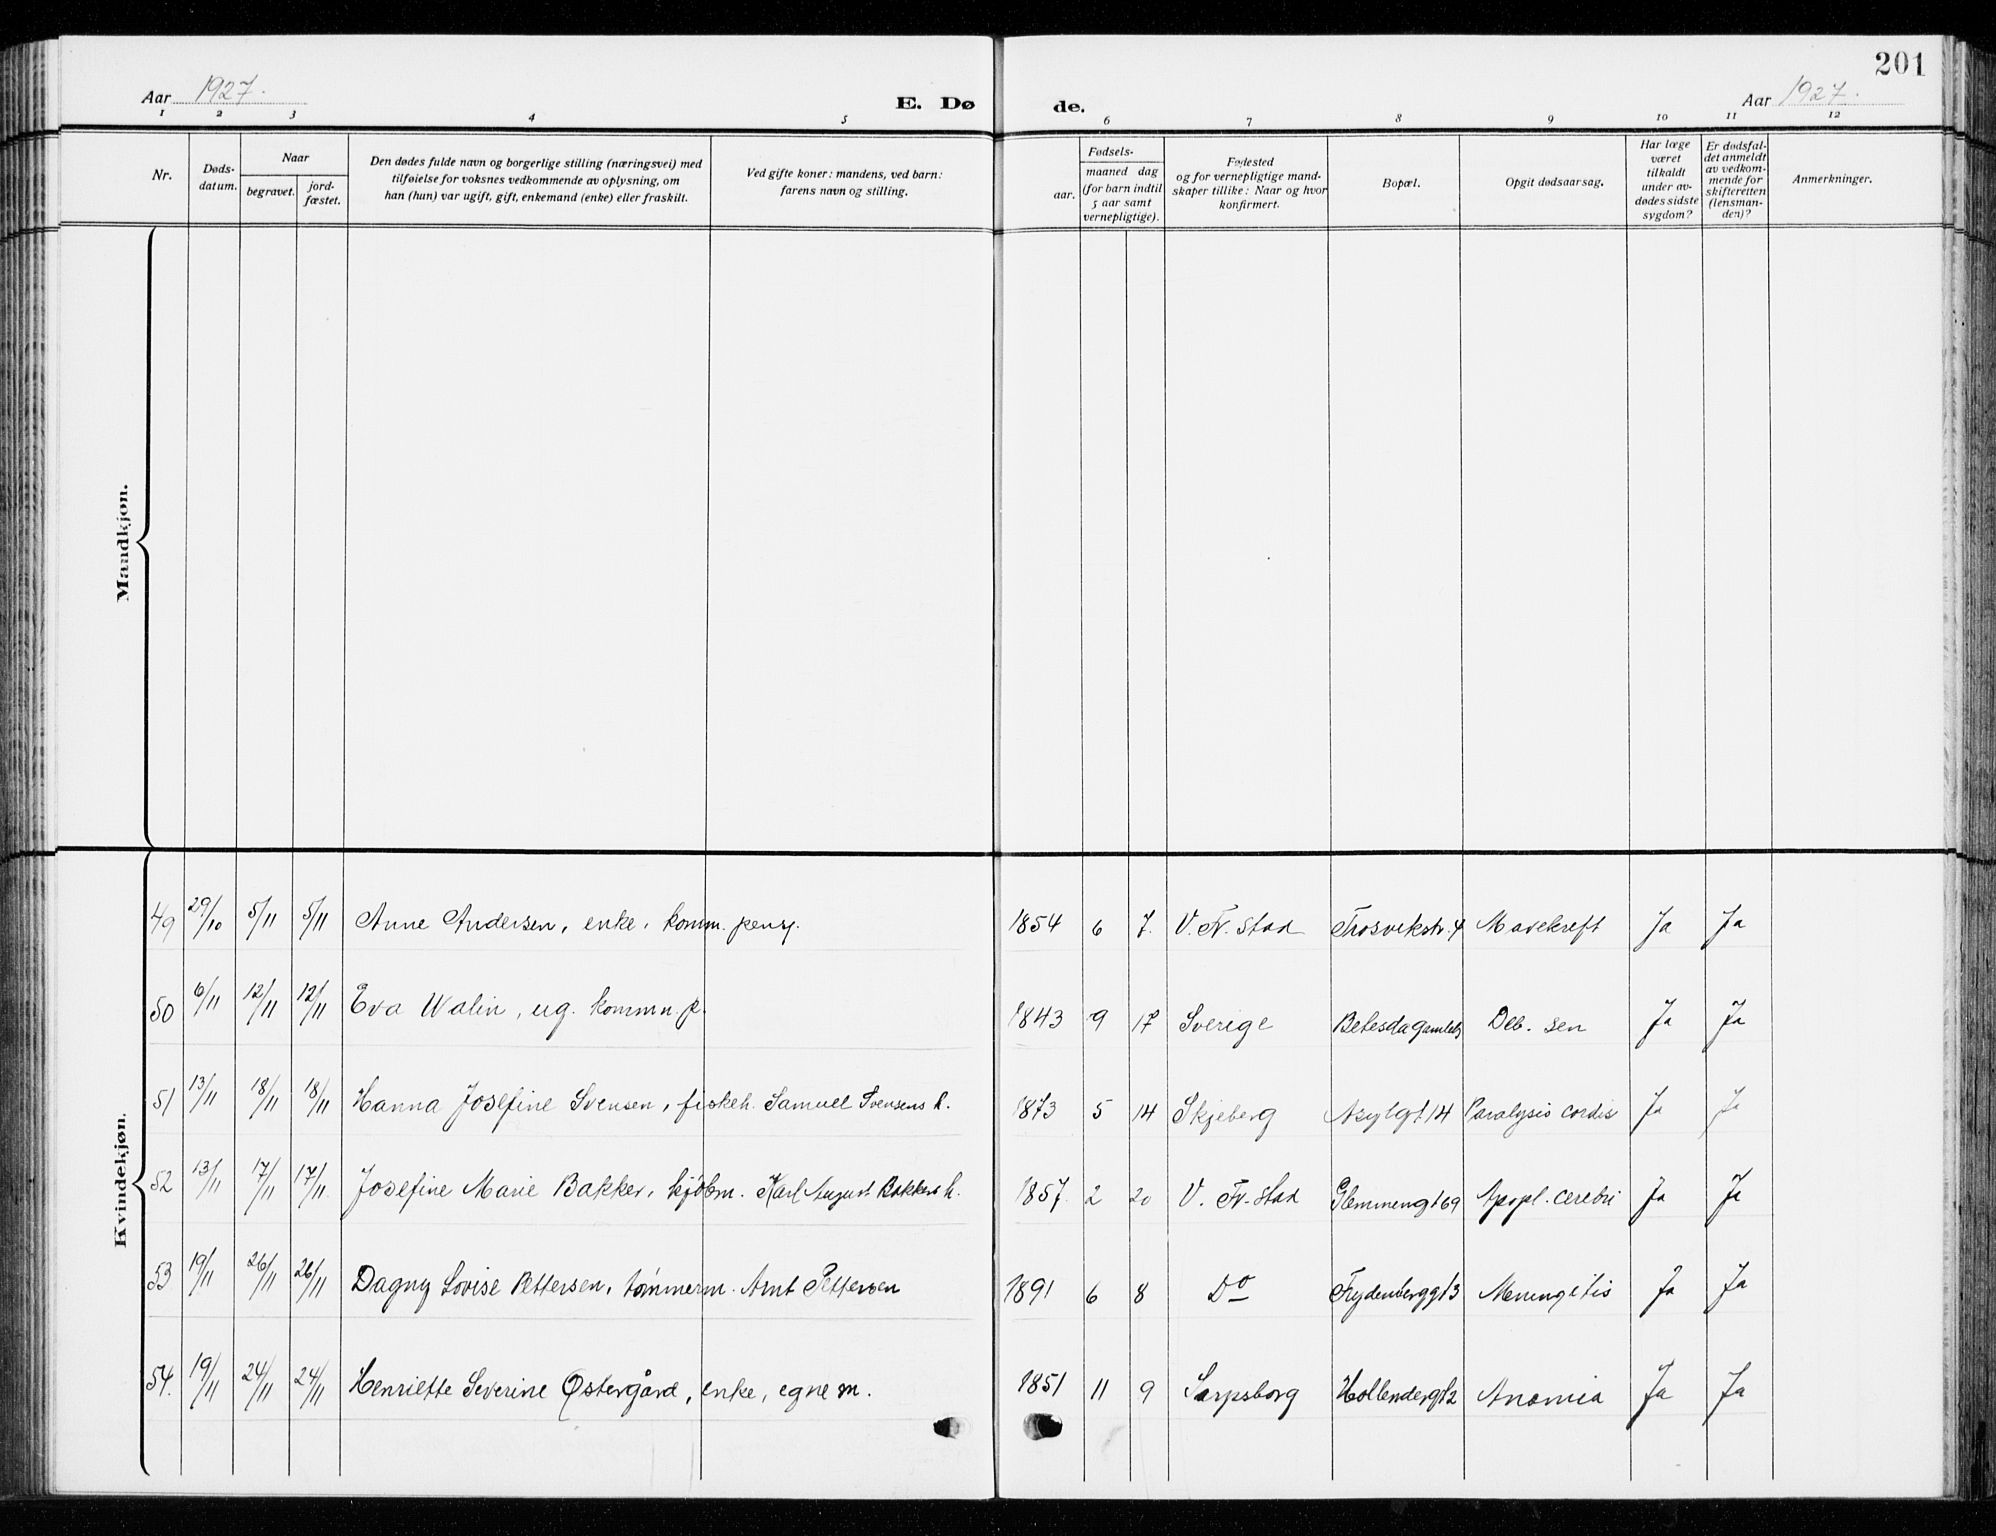 201
Aar 1927.
E. Dø
de.
Aar 1927.
1 2 3 4 5 6 7 8 9 10 11 12
Nr.
Døds-
datum.
Naar
begravet.
jord-
fæstet.
Den dødes fulde navn og borgerlige stilling (næringsvei) med
tilføielse for voksnes vedkommende av oplysning, om
han (hun) var ugift, gift, enkemand (enke) eller fraskilt.
Ved gifte koner: mandens, ved barn:
farens navn og stilling.
Fødsels-
aar.
maaned dag
(for barn indtil
5 aar samt
vernepligtige).
Fødested
og for vernepligtige mand-
skaper tillike: Naar og hvor
konfirmert.
Bopæl.
Opgit dødsaarsag.
Har læge
været
tilkaldt
under av-
dødes sidste
sygdom?
Er dødsfal-
det anmeldt
av vedkom-
mende for
skifteretten
(lensman-
den)?
Anmerkninger.
Mandkjøn.
Kvindekjøn.
49 29/10 5/11 5/11 Anne Andersen, enke, komm. pensj. 1854 6 7. V. Fr. stad Trosvikstr. 4 Mavekreft Ja Ja
50 6/11 12/11 12/11 Eva Walin, ug. kommn. p. 1843 9 17 Sverige Betesda gamleh Deb. sen Ja Ja
51 13/11 18/11 18/11 Hanna Josefine Svensen, fiskeh. Samuel Svensens h. 1873 5 14 Skjeberg Asylgt 14 Paralysis cordis Ja Ja
52 13/11 17/11 17/11 Josefine Marie Bakker, kjøbm. Karl August Bakkers h. 1857 2 20 V. Fr. stad Glemmengt 69 Apopl. cerebri Ja Ja
53 19/11 26/11 26/11 Dagny Lovise Pettersen, tømmerm. Arnt Pettersen 1891 6 8 Do Frydenberggt 3 Meningitis Ja Ja
54. 19/11 24/11 24/11 Henriette Severine Østergård, enke, egne m. 1851 11 9 Sarpsborg Hollendergt 2 Anæmia Ja Ja